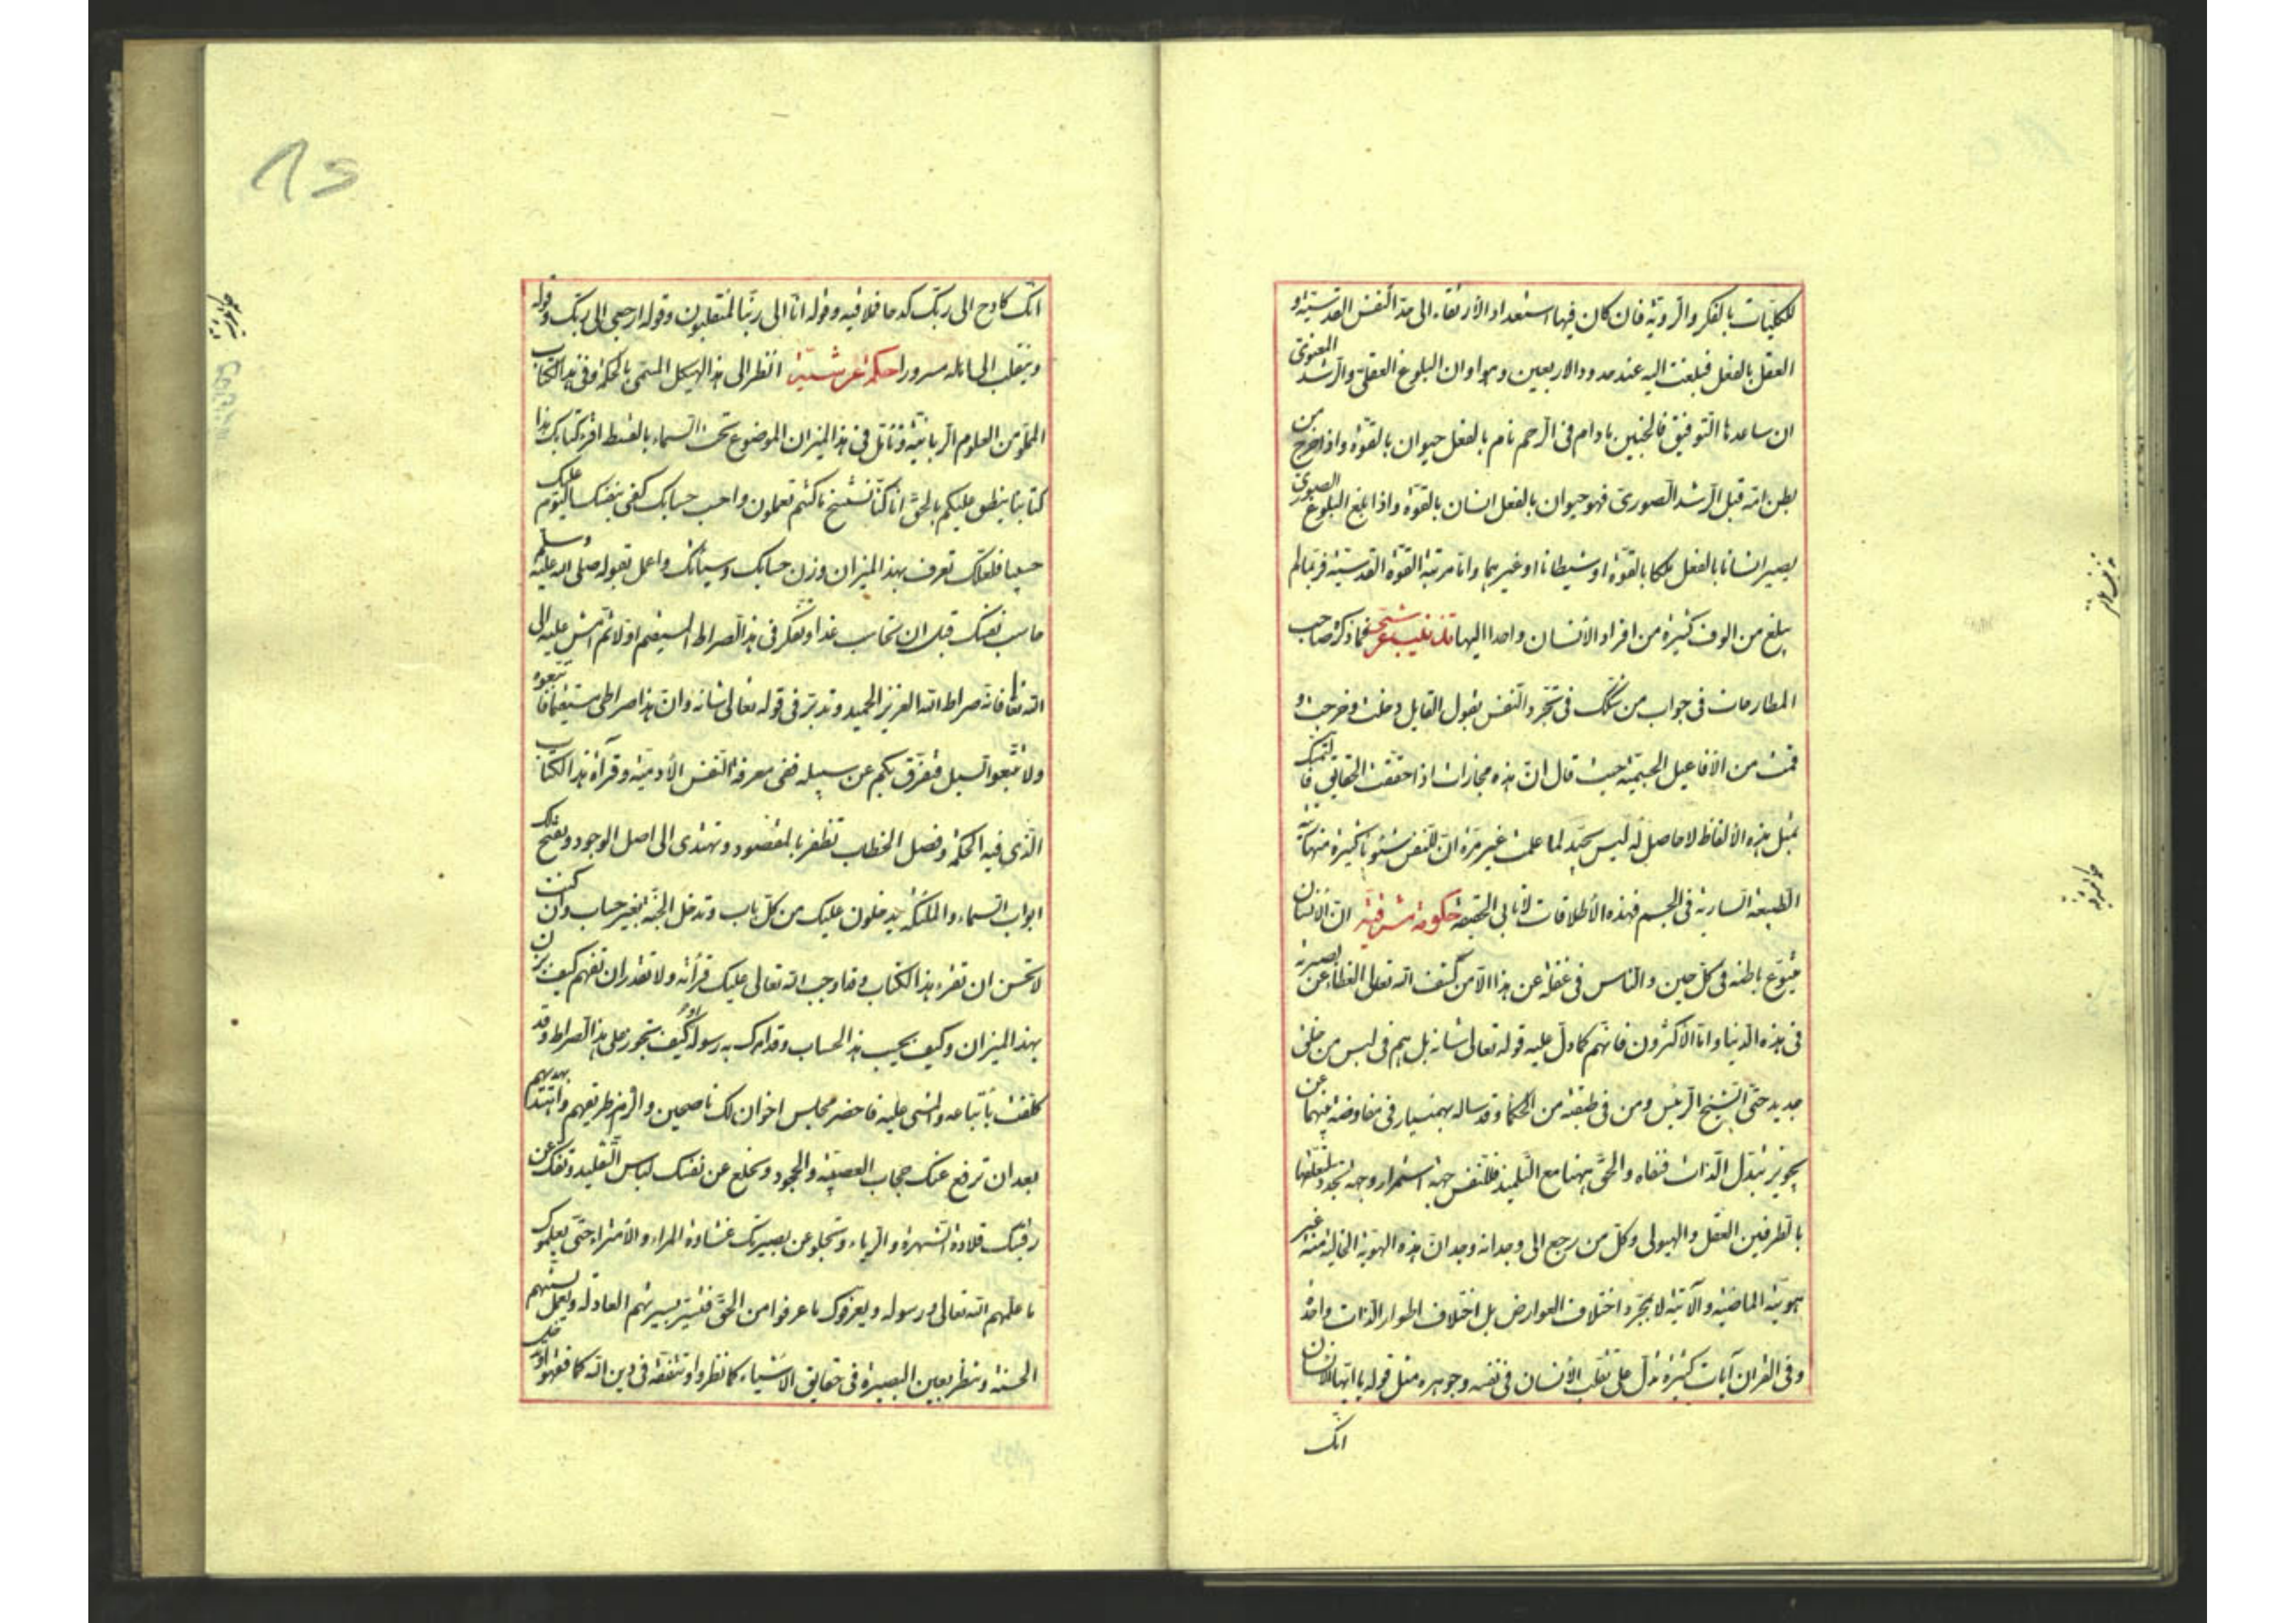 للكليّات بالفكر والرّويّة فان كان فيها استعداد الارتقاء الى حدّ النّفس القدسيّة و
العقل بالفعل فبلغت اليه عند حدود الاربعين وهو اوان البلوغ العقلىّ والرّشد المعنوىّ
ان ساعدها التّوفيق فالجنين مادام فى الرّحم نام بالفعل حيوان بالقوّة واذا خرج من
بطن امّه قبل الرّشد الصّورىّ فهو حيوان بالفعل انسان بالقوّة واذا بلغ البلوغ الصورىّ
يصير انسانا بالفعل ملكا بالقوّة او شيطانا او غيرهما وامّا مرتبة القوّة القدسيّة فربّما لم
يبلغ من الوف كثيرة من افراد الانسان واحدا اليها فما ذكره صاحب
المطارحات فى جواب من شكّك فى تجرّد النّفس بقول القايل دخلت وخرجت و
قمت من الافاعيل الجسميّة حيث قال انّ هذه مجازات اذا حققت الحقايق فالتمسك
بمثل هذه الالفاظ لا حاصل له ليس بجيّد لما علمت غير مرّة انّ للنّفس شئونا كثيرة منها
الطّبيعة السّارية فى الجسم فهذه الاطلاقات لا يابى الحقيقة حكومة مشرقية انّ الانسان
متنوّع باطنه فى كلّ حين والنّاس فى غفلة عن هذا الّا من كشف الله تعالى الغطاء عن بصيرته
فى هذه الدّنيا وامّا الاكثرون فانّهم كما دلّ عليه قوله تعالى شانه بل هم فى لبس من خلق
جديد حتّى الشّيخ الرّئيس ومن فى طبقته من الحكماء وقد ساله بهمنيار فى مفاوضة بينهما عن
تجويز تبدّل الذّات فنفاه والحقّ ههنا مع التّلميذ فللنّفس جهة استمرار وجهة تجدّد لتعلّقها
بالطّرفين العقل والهيولى وكلّ من رجع الى وجدانه وجد انّ هذه الهويّة الحاليّة منه غير
هويّته الماضية والآتية لا بمجرّد اختلاف العوارض بل اختلاف اطوار لذات واحدة
وفى القران آيات كثيرة تدلّ على تقلّب الانسان فى نفسه وجوهره مثل قوله يا ايّها الانسان
انّك
انّك كادح الى ربّك كدحا فملاقيه وقوله انّا الى ربّنا لمنقلبون وقوله ارجعى الى ربّك وقوله
وينقلب الى اهله مسرورا حكمة عرشيّة انظر الى هذا الهيكل المسمّى بالحكمة وفى هذا الكتاب
المملوّ من العلوم الرّبانيّة وتامّل فى هذا الميزان الموضوع تحت السّماء بالقسط اقرء كتابك هذا
كتابنا ينطق عليكم بالحقّ انّا كنّا نستنسخ ما كنتم تعملون واحسب حسابك كفى بنفسك اليوم عليك
حسيبا فلعلّك تعرف بهذا الميزان وزن حسابك وسيّاتك واعمل بقوله صلّى الله عليه وسلم
حاسب نفسك قبل ان تحاسب غدا وتفكّر فى هذا الصّراط المستقيم اوّلا ثم امش عليه الى
الله تعالى فانّه صراط الله العزيز الحميد وتدبّر فى قوله تعالى شانه وانّ هذا صراطى مستقيما فاتّبعوه
ولا تتّبعوا السّبل فتفرّق بكم عن سبيله ففى معرفة النّفس الآدميّة وقرآة هذا الكتاب
الّذى فيه الحكمة وفصل الخطاب تظفر بالمقصود وتهتدى الى اصل الوجود ويفتح لك
ابواب السّماء والملئكة يدخلون عليك من كلّ باب وتدخل الجنّة بغير حساب وان كنت
لا تحسن ان تقرء هذا الكتاب وقد اوجب الله تعالى عليك قرأته ولا تقدر ان تفهم كيف يزن
بهذا الميزان وكيف يحسب هذا الحساب وقد امرك به رسوله او كيف تجوز على هذا الصّراط وقد
كلّفت باتّباعه والمشى عليه فاحضر مجلس اخوان لك ناصحين والزم طريقهم واهتد بهديهم
بعد ان ترفع عنك حجاب العصبيّة والجحود وتخلع عن نفسك لباس التّقليد وتفكّ عن
رقبتك قلادة الشّهرة والرّياء وتجلو عن بصيرتك غشاوة المراء والامتراء حتّى يعلموك
ما علّمهم الله تعالى ورسوله ويعرفوك ما عرفوا من الحقّ فتسير بسيرتهم العادلة وتعمل بسنّتهم
الحسنة وتنظر بعين البصيرة فى حقايق الاشياء كما نظروا وتتفقّه فى دين الله كما فقهوا